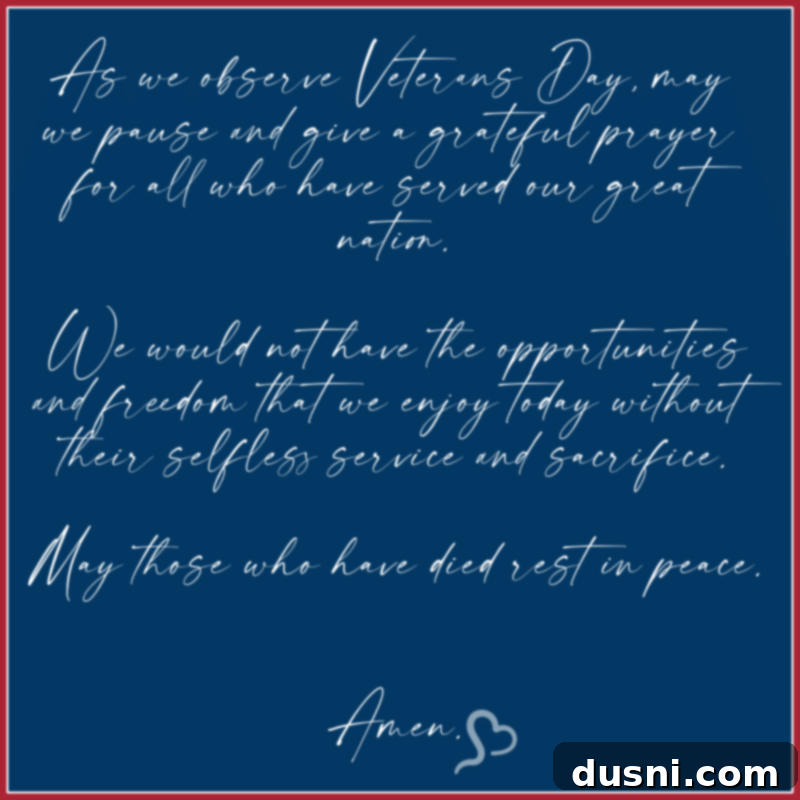 As we observe Veterans Day, may
we pause and give a grateful prayer
for all who have served our great
nation.
We would not have the opportunities
and freedom that we enjoy today without
their selfless service and sacrifice.
May those who have died rest in peace.
Amen.
dusni.com